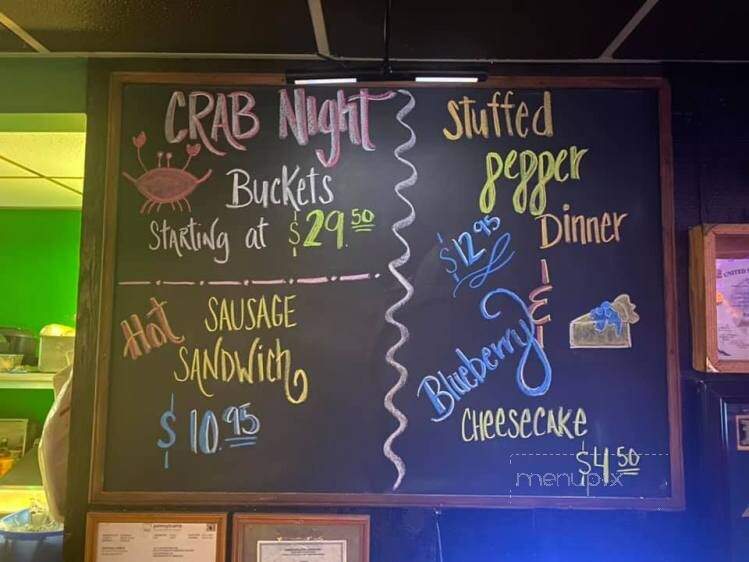 CRAB Night
Buckets
Starting at $29.50
Hot SAUSAGE
SANDWich
$10.95
Stuffed
pepper
Dinner
$12.95
&
Blueberry
CHEESECAKE
$4.50
menupix
UNITED